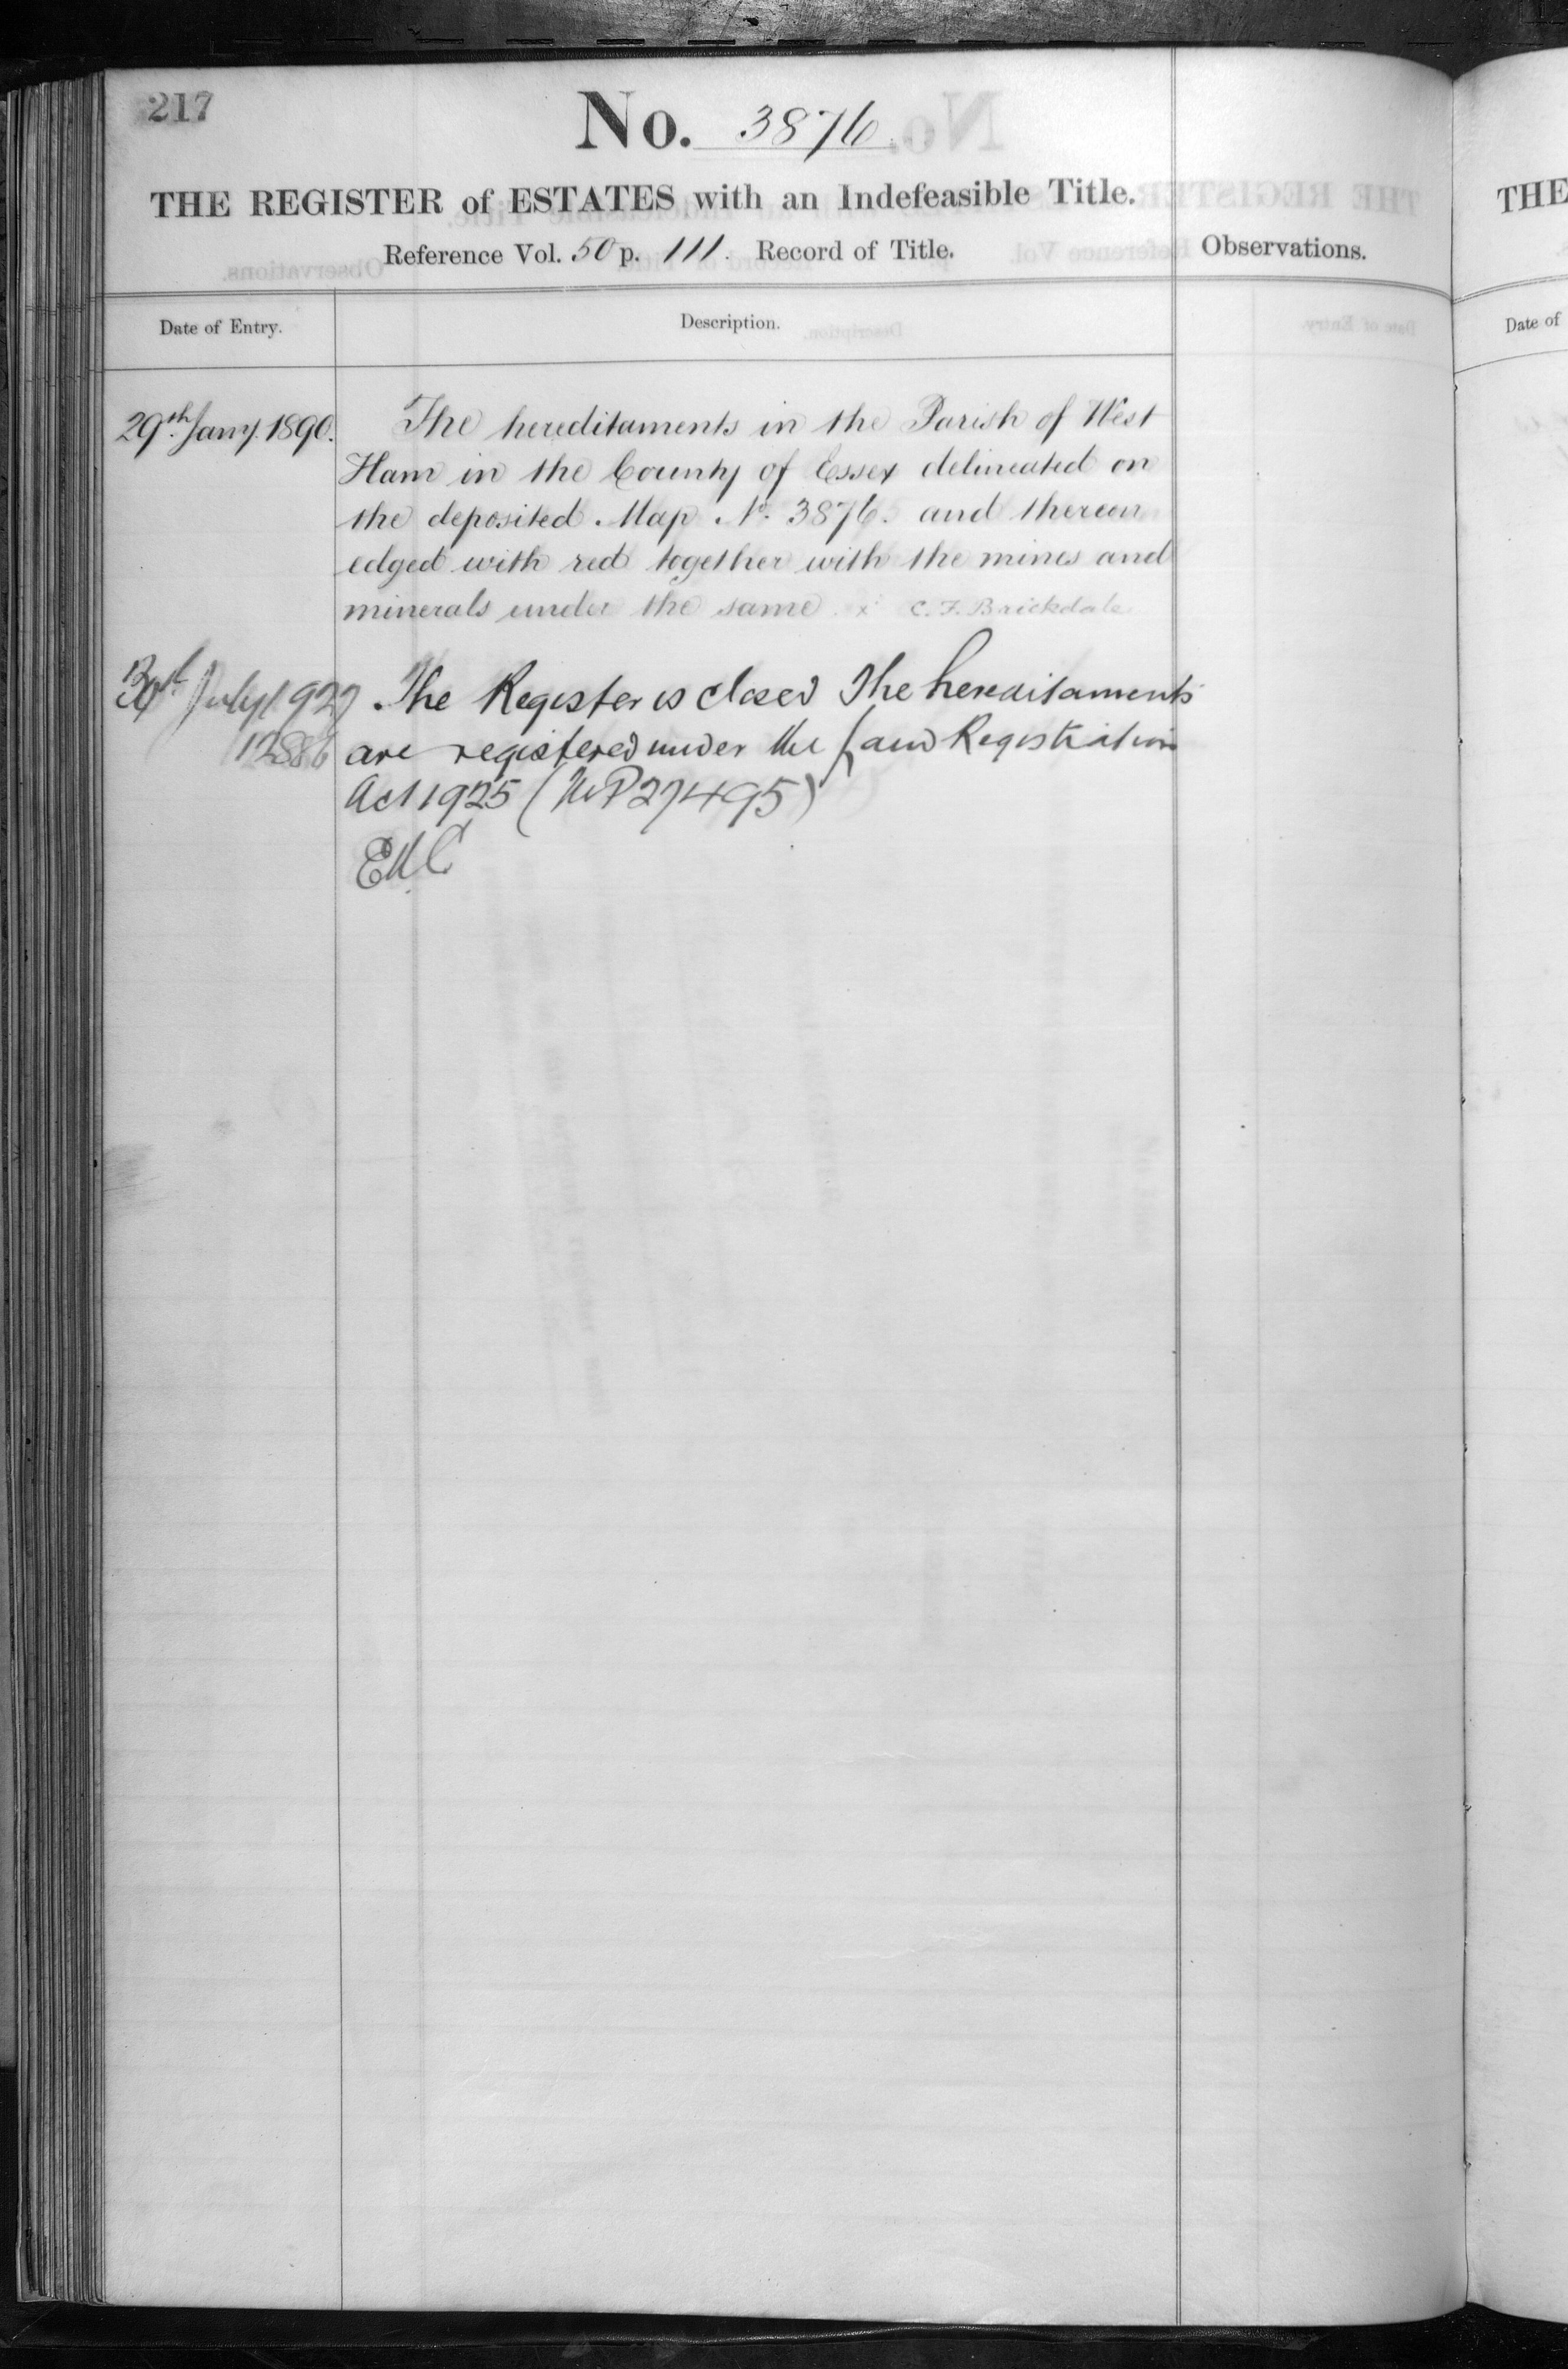 217
No. 3876
THE REGISTER of ESTATES with an Indefeasible Title.
Reference Vol. 50 p. 111. Record of Title.
Observations.
Date of Entry.
Description.
29th Jany. 1890.
The hereditaments in the Parish of West
Ham in the County of Essex delineated on
the deposited Map No. 3876. and thereon
edged with red together with the mines and
minerals under the same. x C. F. Brickdale
July 1927
The Register is closed The hereditaments
are registered under the Land Registration
Act 1925 (
THE
Date of